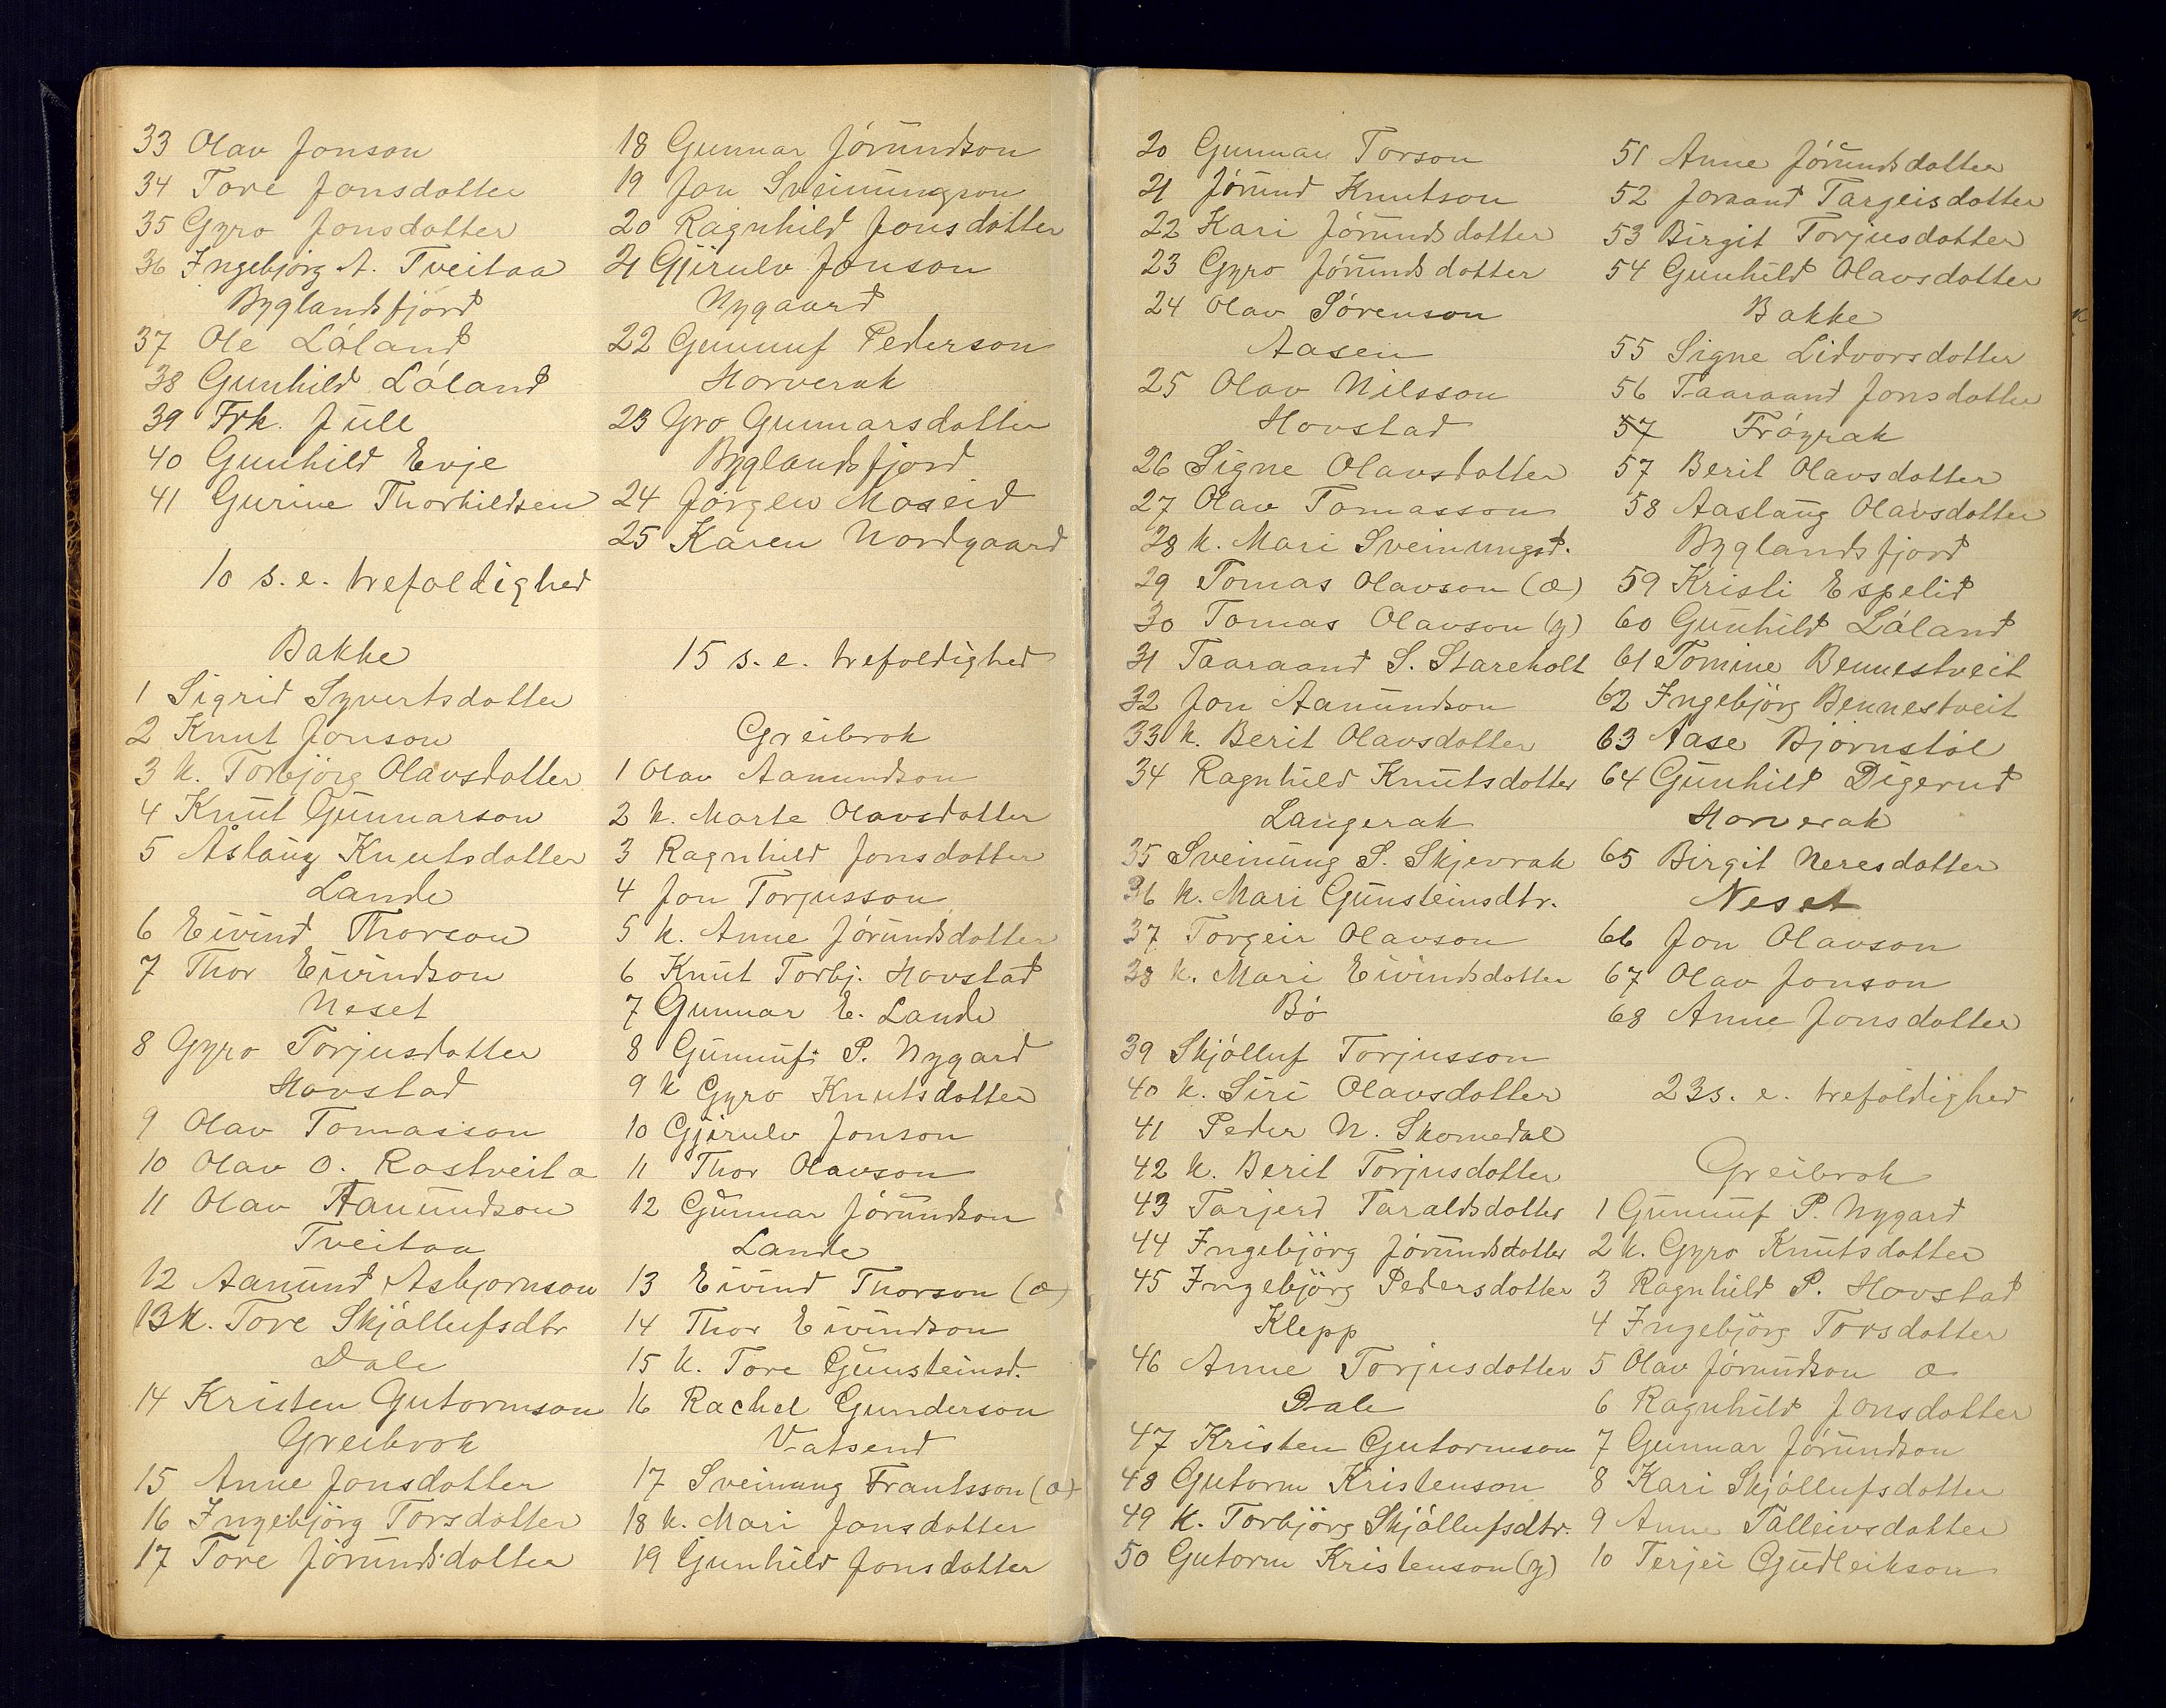 33 Olav Jonson
34 Tore Jonsdotter
35 Gyro Jonsdotter
36 Ingebjörg A. Tveitaa
Byglandsfjord
37 Ole Lóland
38 Gunhild Lóland
39 Frk. Juell
40 Gunhild Evje
41 Gurine Thorkildsen
10 s. e. trefoldighed
Bakke
1 Sigrid Syvertsdotter
2 Knut Jonson
3 k. Torbjörg Olavsdotter
4 Knut Gunnarson
5 Åslaug Knutsdotter
Lande
6 Eivind Thorson
7 Thor Eivindson
Neset
8 Gyro Torjusdotter
Hovstad
9 Olav Tomasson
10 Olav O. Rostveit a
11 Olav Aanundson
Tveitaa
12 Aanund Asbjornson
13 k. Tore Skjóllufsdtr
Dale
14 Kristen Gutormson
Greibrok
15 Anne Jonsdotter
16 Ingebjörg Torsdotter
17 Tore Jórundsdotter
18 Gunnar Jórundson
19 Jon Sveinungson
20 Ragnhild Jonsdotter
21 Gjerulv Jonson
Nygaard
22 Gunnuf Pederson
Horverak
23 Gro Gunnarsdotter
Byglandsfjord
24 Jörgen Moseid
25 Karen Nordgaard
15 s. e. trefoldighed
Greibrok
1 Olav Aanundson
2 k. Marte Olavsdotter
3 Ragnhild Jonsdotter
4 Jon Torjusson
5 k. Anne Jórundsdotter
6 Knut Torbj. Hovstad
7 Gunnar E. Lande
8 Gunnuf P. Nygard
9 k Gyro Knutsdotter
10 Gjerulv Jonson
11 Thor Olavson
12 Gunnar Jórundson
Lande
13 Eivind Thorson (æ)
14 Thor Eivindson
15 k. Tore Gunsteinsd.
16 Rachel Gunderson
Vatsend
17 Sveinung Frantsson (æ)
18 k. Mari Jonsdotter
19 Gunhild Jonsdotter
20 Gunnar Torson
21 Jórund Knutson
22 Kari Jórundsdotter
23 Gyro Jórundsdotter
24 Olav Sórenson
Aasen
25 Olav Nilsson
Hovstad
26 Signe Olavsdotter
27 Olav Tomasson
28 k. Mari Sveinungsd.
29 Tomas Olavson (æ)
30 Tomas Olavson (y)
31 Taaraand S. Stareholt
32 Jon Aanundson
33 k. Berit Olavsdotter
34 Ragnhild Knutsdotter
Langerak
35 Sveinung S. Skjevrak
36 k. Mari Gunsteinsdtr.
37 Torgeir Olavson
38 k. Mari Eivindsdotter
Bó
39 Skjólluf Torjusson
40 k. Siri Olavsdotter
41 Peder N. Skomedal
42 k. Berit Torjusdotter
43 Tarjerd Taraldsdotter
44 Ingebjörg Jórundsdotter
45 Ingebjörg Pedersdotter
Klepp
46 Anne Torjusdotter
Dale
47 Kristen Gutormson
48 Gutorm Kristenson
49 k. Torbjörg Skjóllufsdtr.
50 Gutorm Kristenson (y)
51 Anne Jórundsdotter
52 Joraand Targeisdotter
53 Birgit Torjusdotter
54 Gunhild Olavsdotter
Bakke
55 Signe Lidvorsdotter
56 Taaraand Jonsdotter
57 Fróyrak
57 Berit Olavsdotter
58 Aaslaug Olavsdotter
Byglandsfjord
59 Kristi Espelid
60 Gunhild Lóland
61 Tomine Bennestveit
62 Ingebjörg Bennestveit
63 Aase Bjornstól
64 Gunhild Digerud
Horverak
65 Birgit Neresdotter
Neset
66 Jon Olavson
67 Olav Jonson
68 Anne Jonsdotter
23 s. e. trefoldighed
Greibrok
1 Gunnuf P. Nygard
2 k. Gyro Knutsdotter
3 Ragnhild P. Hovstad
4 Ingebjörg Torsdotter
5 Olav Jórundson æ
6 Ragnhild Jonsdotter
7 Gunnar Jórundson
8 Kari Skjóllufsdotter
9 Anne Talleivsdotter
10 Terjei Gudleikson